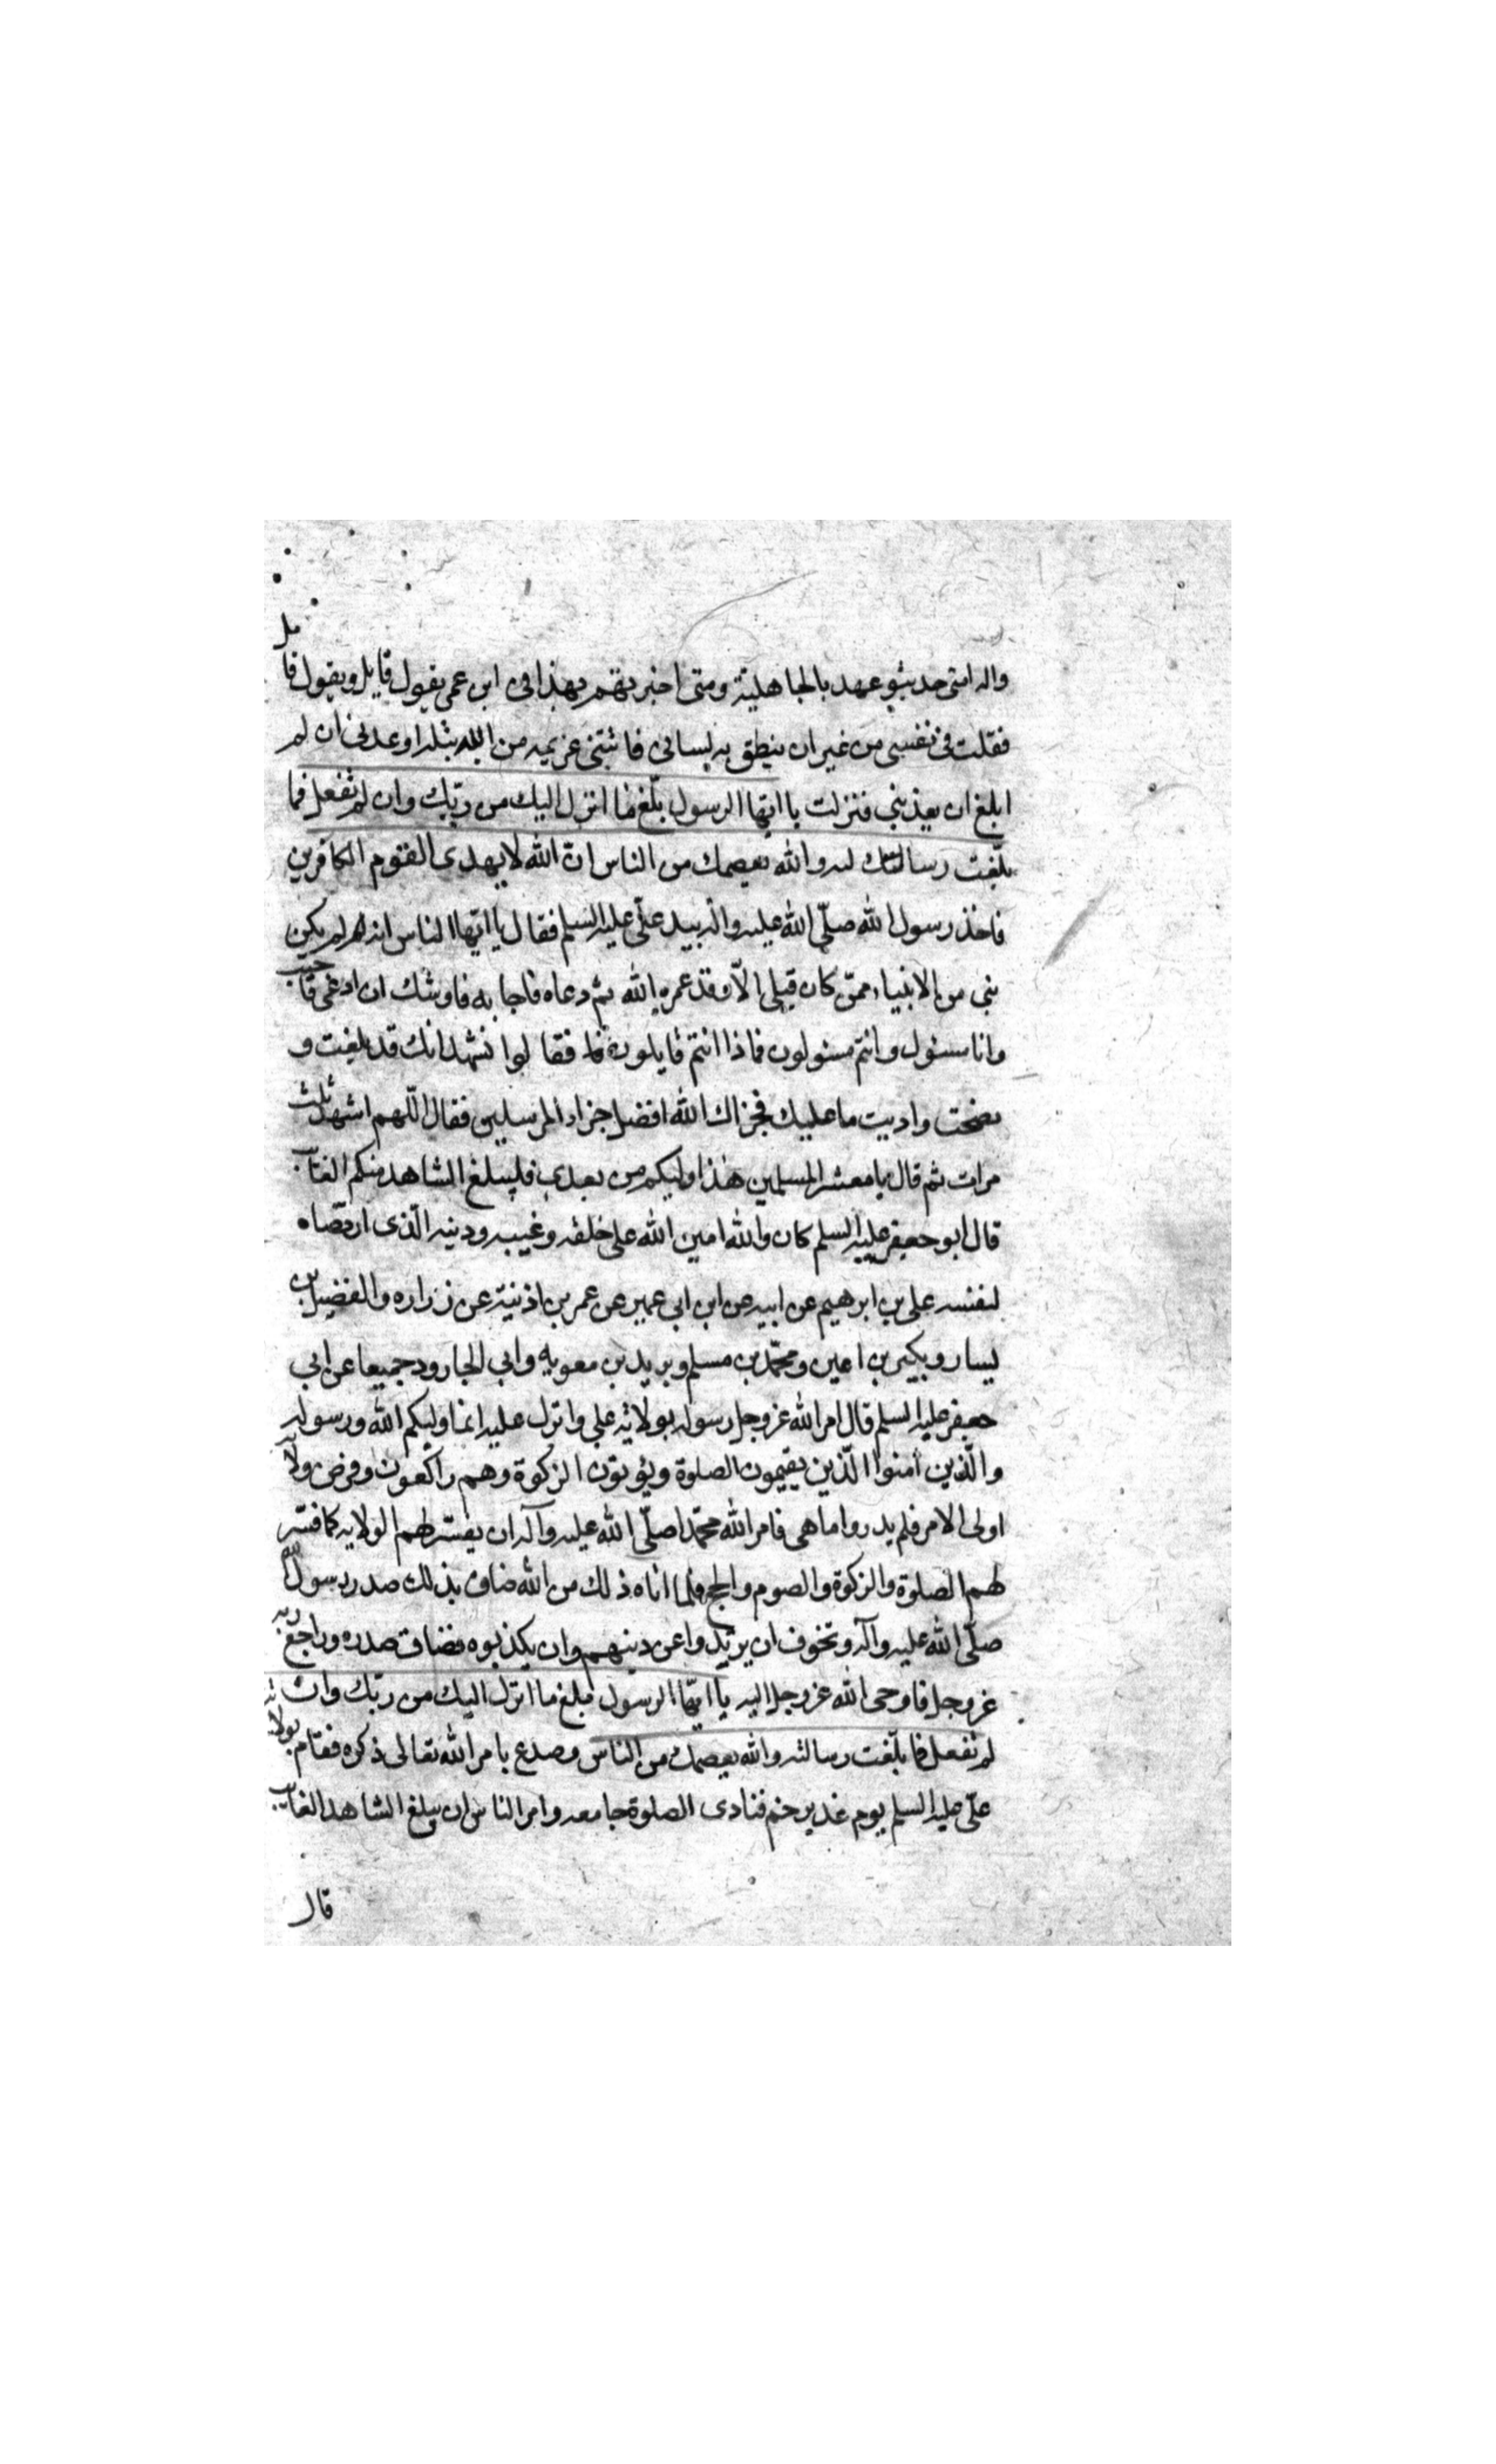 واله امتى حديثو عهد بالجاهلية ومتى اخبرتهم بهذا فى ابن عمى يقول قايل ويقول قايل
فقلت فى نفسى من غير ان ينطق به لسانى فاتتنى عزيمه من الله بتله اوعدنى ان لم
ابلغ ان يعذبنى فنزلت يا ايها الرسول بلغ ما انزل اليك من ربك وان لم تفعل فما
بلغت رسالته والله يعصمك من الناس ان الله لا يهدى القوم الكافرين
فاخذ رسول الله صلّى الله عليه واله بيد علّى عليه السلم فقال يا ايها الناس انه لم يكن
نبى من الانبياء ممن كان قبلى الّا وقد عمره الله ثم دعاه فاجابه فاوشك ان ادعى فاجيب
وانا مسئول وانتم مسئولون فماذا انتم قايلون فقالوا نشهد انك قد بلغت و
نصحت واديت ما عليك فجزاك الله افضل جزاء المرسلين فقال اللّهم اشهد ثلث
مرات ثم قال يا معشر المسلمين هذا وليكم من بعدى فليبلغ الشاهد منكم الغايب
قال ابو جعفر عليه السلم كان والله امين الله على خلقه وغيبه ودينه الّذى ارتضاه
لنفسه على بن ابرهيم عن ابيه عن ابن ابى عمير عن عمر بن اذينة عن زراره والفضيل بن
يسار وبكير بن اعين ومحمّد بن مسلم وبريد بن معويه وابى الجارود جميعا عن ابى
جعفر عليه السلم قال امر الله عز وجل رسوله بولاية على وانزل عليه انما وليكم الله ورسوله
والّذين امنوا الّذين يقيمون الصلوة ويؤتون الزكوة وهم راكعون وفرض ولايه
اولى الامر فلم يدروا ما هى فامر الله محمّدا صلّى الله عليه وآله ان يفسر لهم الولايه كما فسّر
لهم الصلوة والزكوة والصوم والحج فلما اتاه ذلك من الله ضاق بذلك صدر رسول الله
صلّى الله عليه وآله وتخوف ان يرتدوا عن دينهم وان يكذبوه فضاق صدره وراجع ربه
عز وجل فاوحى الله عز وجل اليه يا ايّها الرسول بلغ ما انزل اليك من ربك وان
لم تفعل فما بلّغت رسالته والله يعصمك من الناس فصدع بامر الله تعالى ذكره فقام بولاية
علّى عليه السلم يوم غدير خم فنادى الصلوة جامعه وامر الناس ان يبلغ الشاهد الغايب
قال